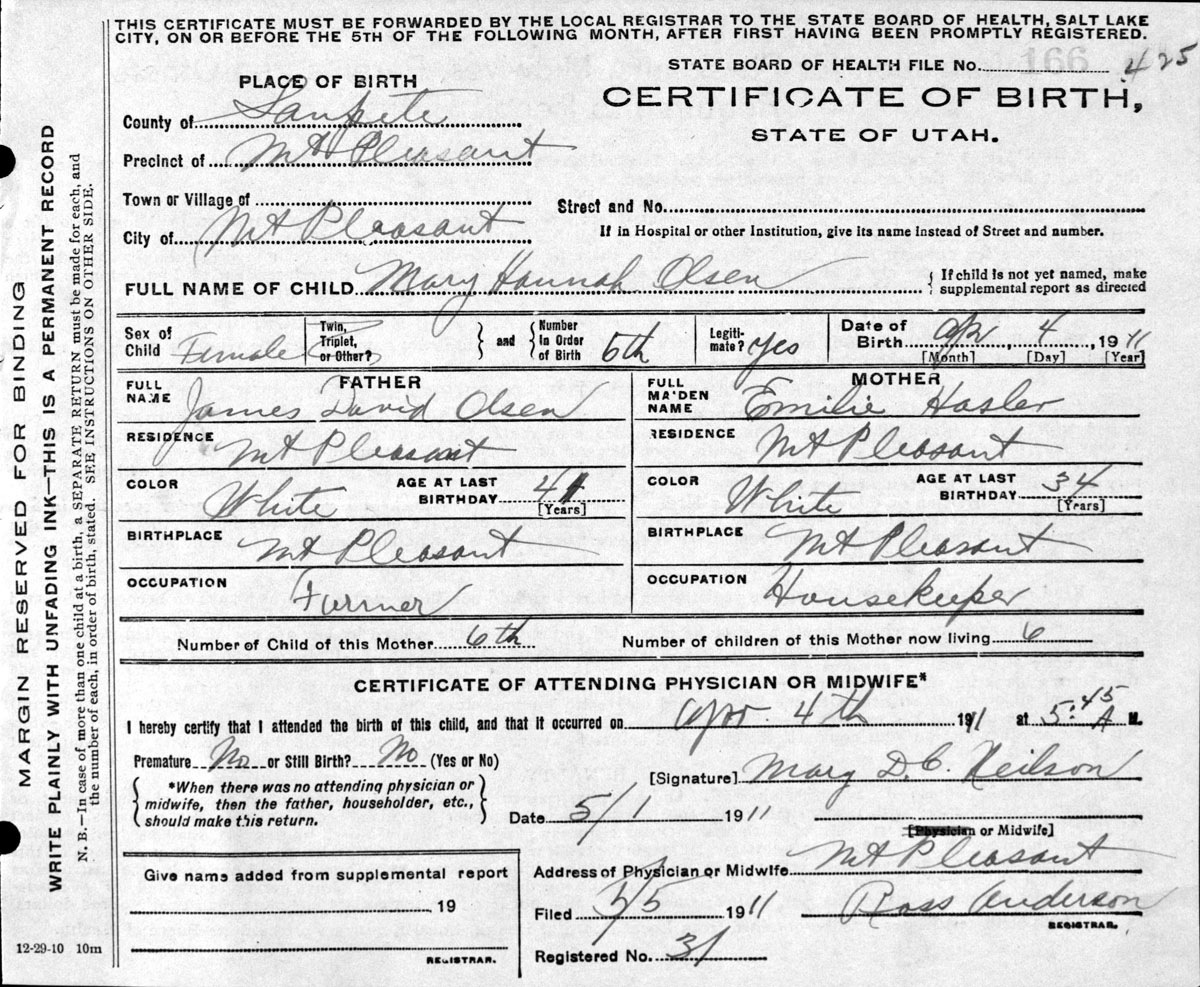 THIS CERTIFICATE MUST BE FORWARDED BY THE LOCAL REGISTRAR TO THE STATE BOARD OF HEALTH, SALT LAKE
CITY, ON OR BEFORE THE 5TH OF THE FOLLOWING MONTH, AFTER FIRST HAVING BEEN PROMPTLY REGISTERED.
MARGIN RESERVED FOR BINDING
WRITE PLAINLY WITH UNFADING INK—THIS IS A PERMANENT RECORD
N. B.—In case of more than one child at a birth, a SEPARATE RETURN must be made for each, and
the number of each, in order of birth, stated. SEE INSTRUCTIONS ON OTHER SIDE.
STATE BOARD OF HEALTH FILE No. 166 425
PLACE OF BIRTH
CERTIFICATE OF BIRTH,
STATE OF UTAH.
County of Sanpete
Precinct of Mt Pleasant
Town or Village of
Street and No.
City of Mt Pleasant
If in Hospital or other Institution, give its name instead of Street and number.
FULL NAME OF CHILD Mary Hannah Olsen { If child is not yet named, make
supplemental report as directed
Sex of Child Female
Twin, Triplet, or Other?
} and { Number In Order of Birth 6th
Legitimate? Yes
Date of Birth Apr 4, 1911
[Month] [Day] [Year]
FATHER
FULL NAME James David Olsen
MOTHER
FULL MAIDEN NAME Emilie Hasler
RESIDENCE Mt Pleasant
RESIDENCE Mt Pleasant
COLOR White AGE AT LAST BIRTHDAY 41 [Years]
COLOR White AGE AT LAST BIRTHDAY 34 [Years]
BIRTHPLACE Mt Pleasant
BIRTHPLACE Mt Pleasant
OCCUPATION Farmer
OCCUPATION Housekeeper
Number of Child of this Mother 6th Number of children of this Mother now living 6
CERTIFICATE OF ATTENDING PHYSICIAN OR MIDWIFE*
I hereby certify that I attended the birth of this child, and that it occurred on Apr. 4th 1911 at 5:45 A M.
Premature No or Still Birth? No (Yes or No)
[Signature] Mary D. C. Neilson
{ *When there was no attending physician or
midwife, then the father, householder, etc.,
should make this return. }
Date 5/1 1911
[Physician or Midwife]
Give name added from supplemental report
19
REGISTRAR.
Address of Physician or Midwife Mt Pleasant
Filed 5/5 1911 Ross Anderson
REGISTRAR.
Registered No. 31
12-29-10 10m